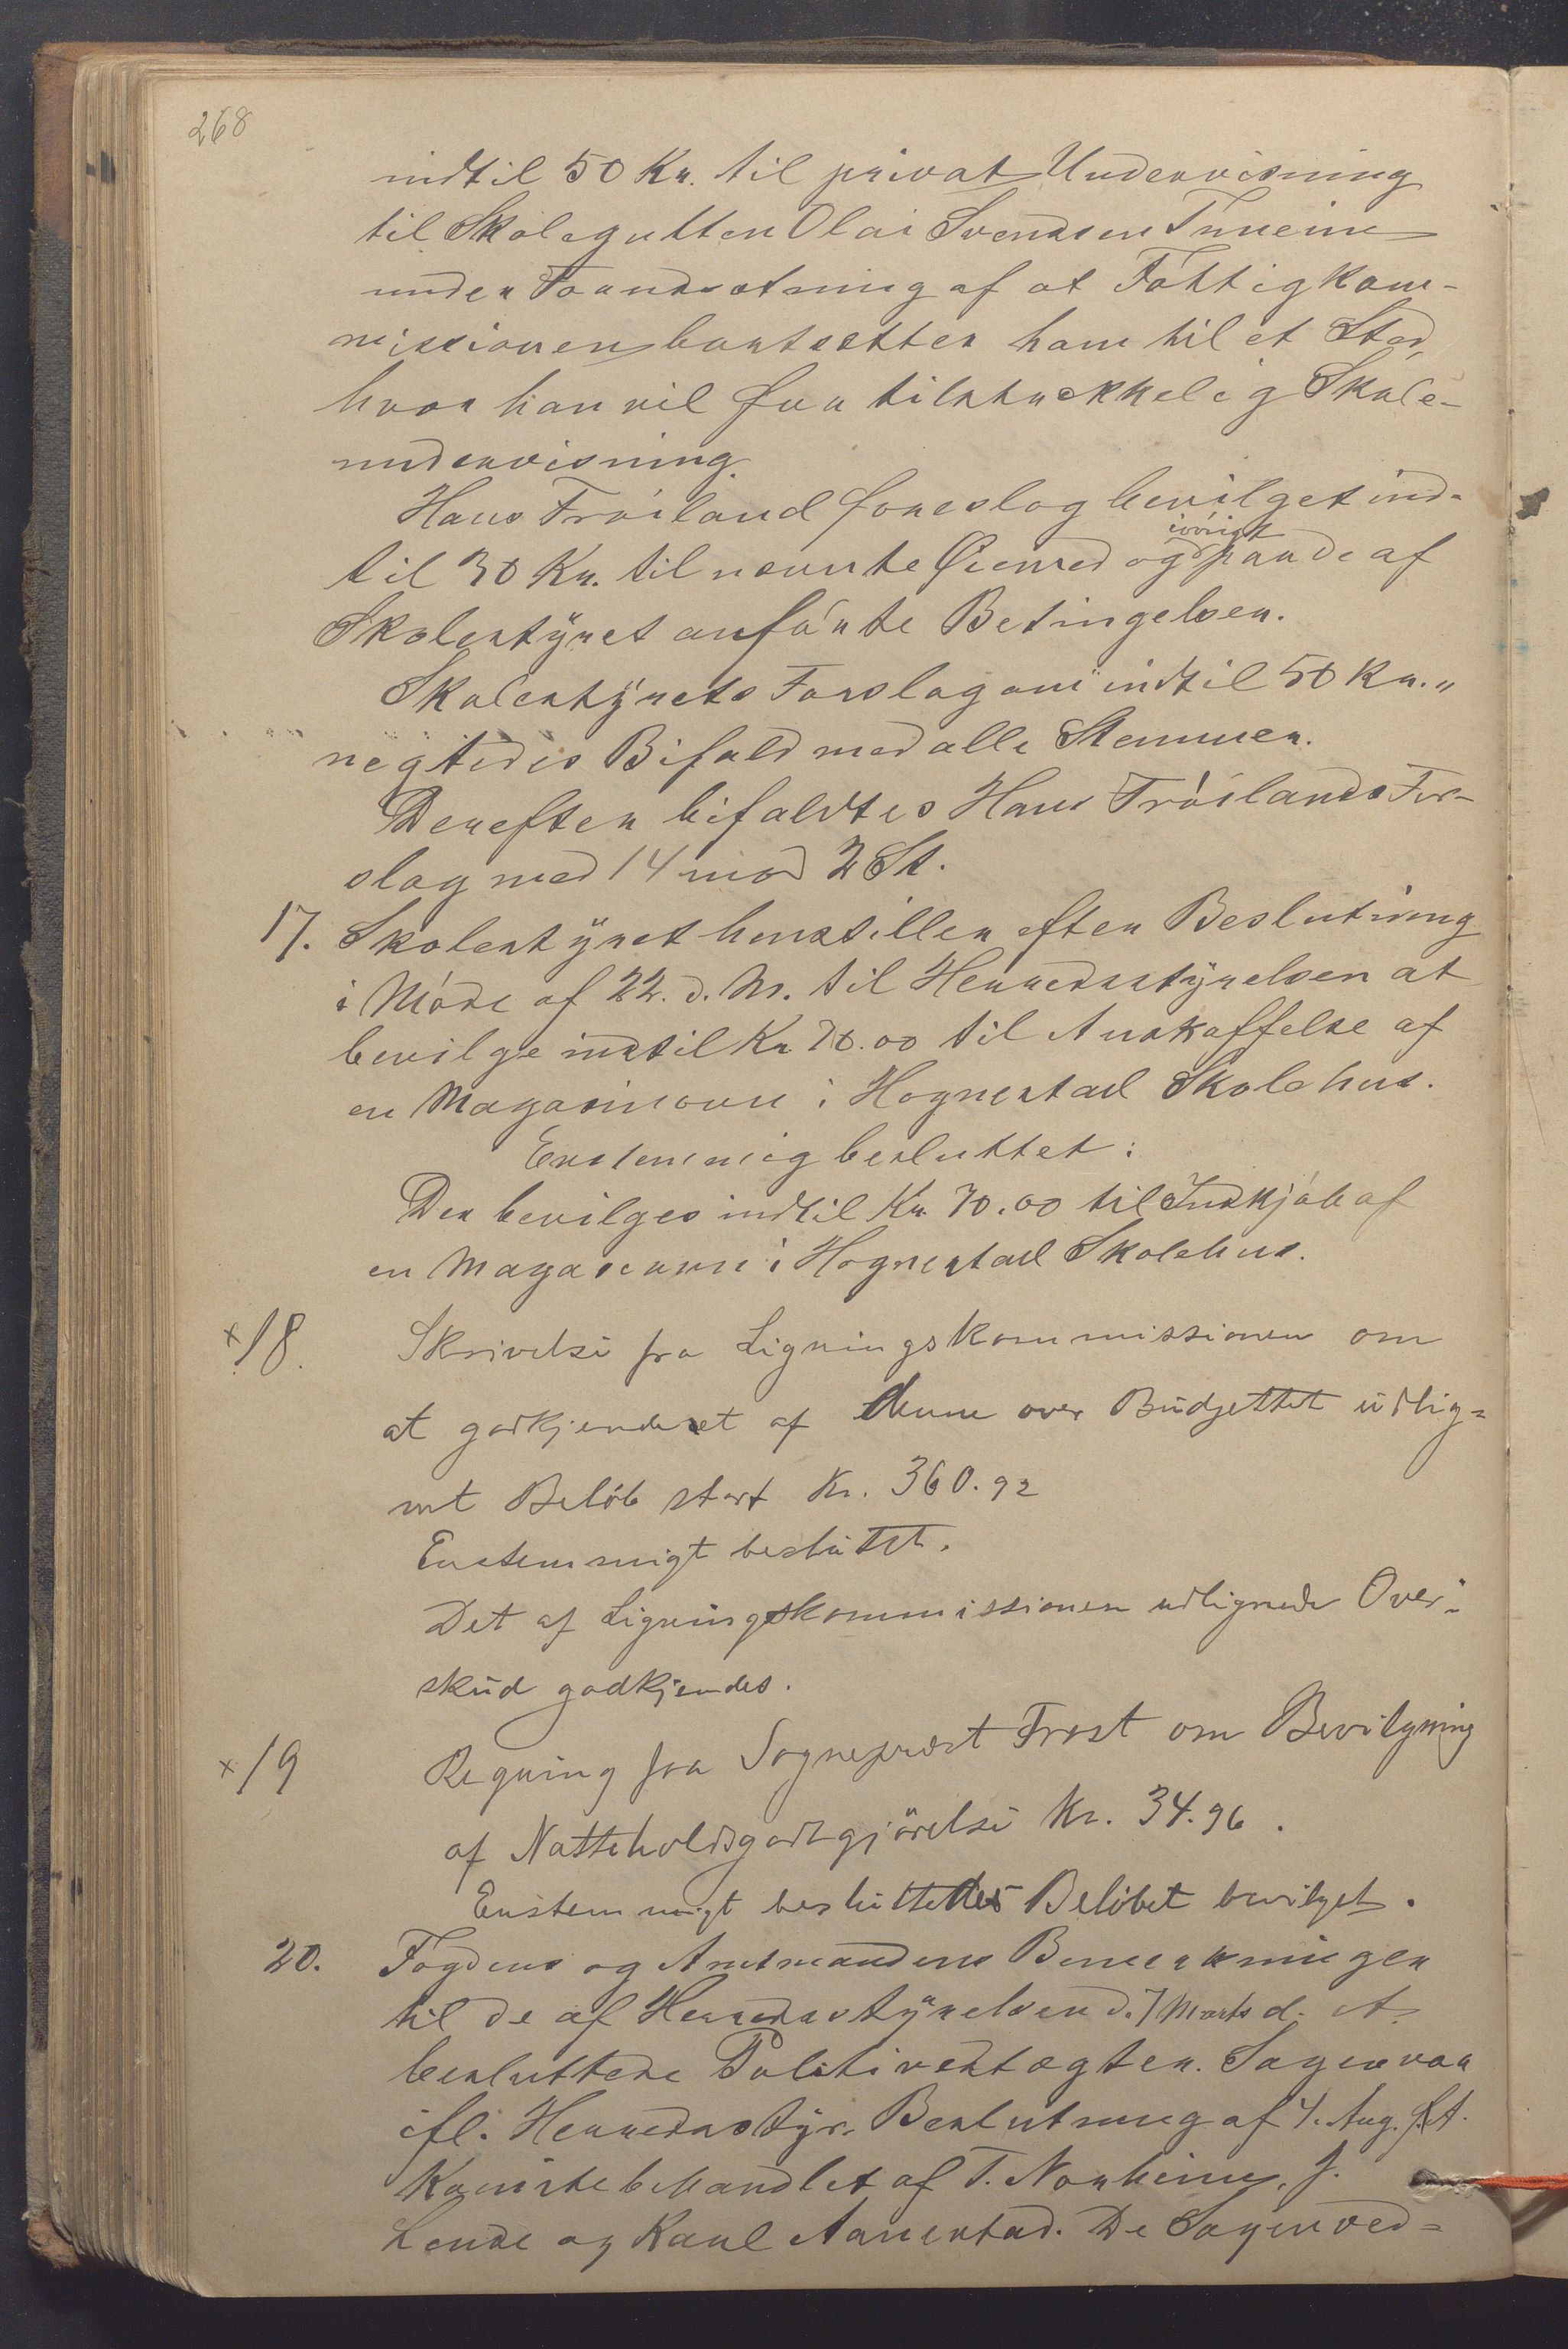 268
indtil 50 Kr. til privat Undervisning
til Skolegutten Olai Svendsen Tuneim
under Forudsætning af at Fattigkom-
missionen bortsætter ham til et Sted,
hvor han vil faa tilstrækkelig Skole-
undervisning.
Hans Fröiland foreslog bevilget ind-
til 30 Kr. til nævnte Øiemed og iövrigt paa de af
Skolestyret anförte Betingelser.
Skolestyrets Forslag om indtil 50 Kr. „
negtedes Bifald med alle Stemmer.
Derefter bifaldtes Hans Fröilands For-
slag med 14 mod 2 St.
17. Skolestyret henstiller efter Beslutning
i Möde af 22. d. M. til Herredsstyrelsen at
bevilge indtil Kr 70.00 til Anskaffelse af
en Magasinovn i Hognestad Skolehus.
Enstemmig besluttet:
Der bevilges indtil Kr. 70.00 til Indkjöb af
en Magasinovn i Hognestad Skolehus.
x 18. Skrivelse fra Ligningskommissionen om
at godkjendt et af denne over Budgettet udlig=
net Belöb stort Kr. 360.92
Enstemmigt beslutet.
Det af Ligningskommissionen udlignede Over=
skud godkjendes.
x 19 Regning fra Sogneprest Frost om Bevilgning
af Natteholdsgodtgjörelse Kr. 34.96.
Enstemmigt besluttedes Belöbet bevilget.
20. Fogdens og Amtmandens Bemerkninger
til de af Herredsstyrelsen d. 7 Marts d. A.
besluttede Politivedtægter. Sagen var
ifl. Herredsstyr. Beslutning af 4. Aug. f. A.
Komitebehandlet af T. Norheim, J.
Lende og Karl Aanestad. De Sagen ved=